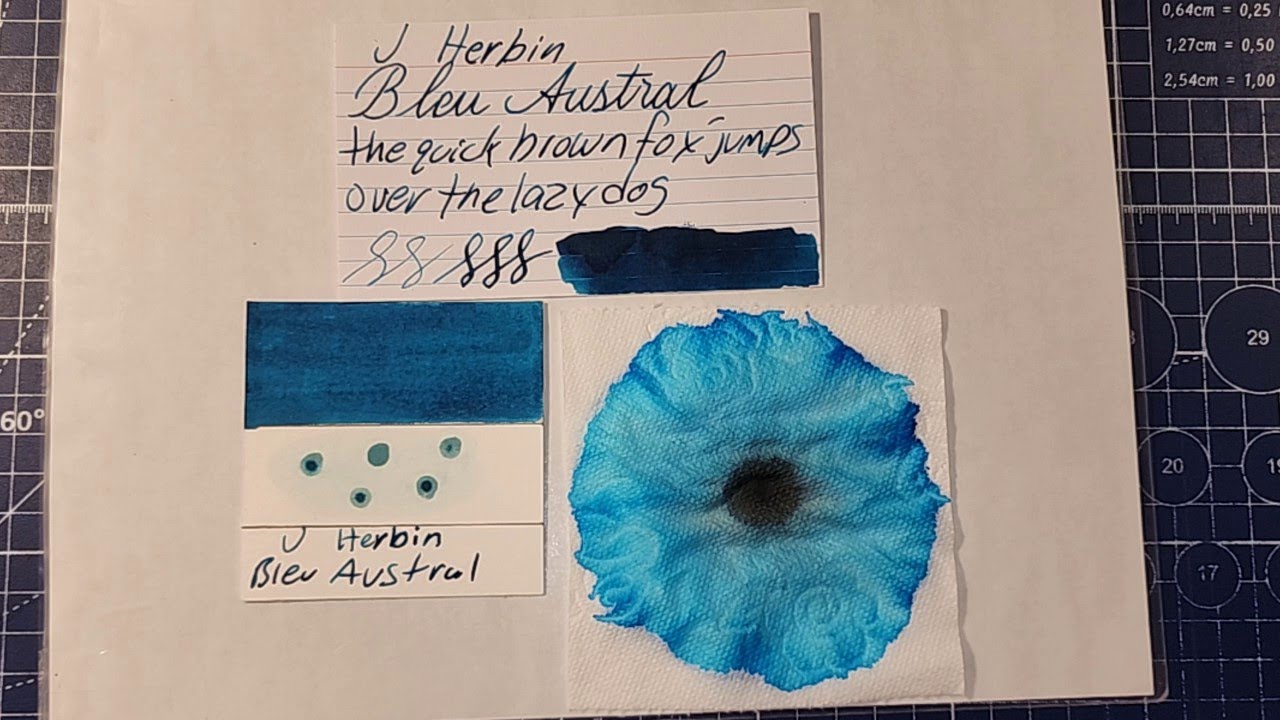 J Herbin
Bleu Austral
the quick brown fox jumps
over the lazy dog
J Herbin
Bleu Austral
0,64cm = 0,25
1,27cm = 0,50
2,54cm = 1,00
29
20
17
60°